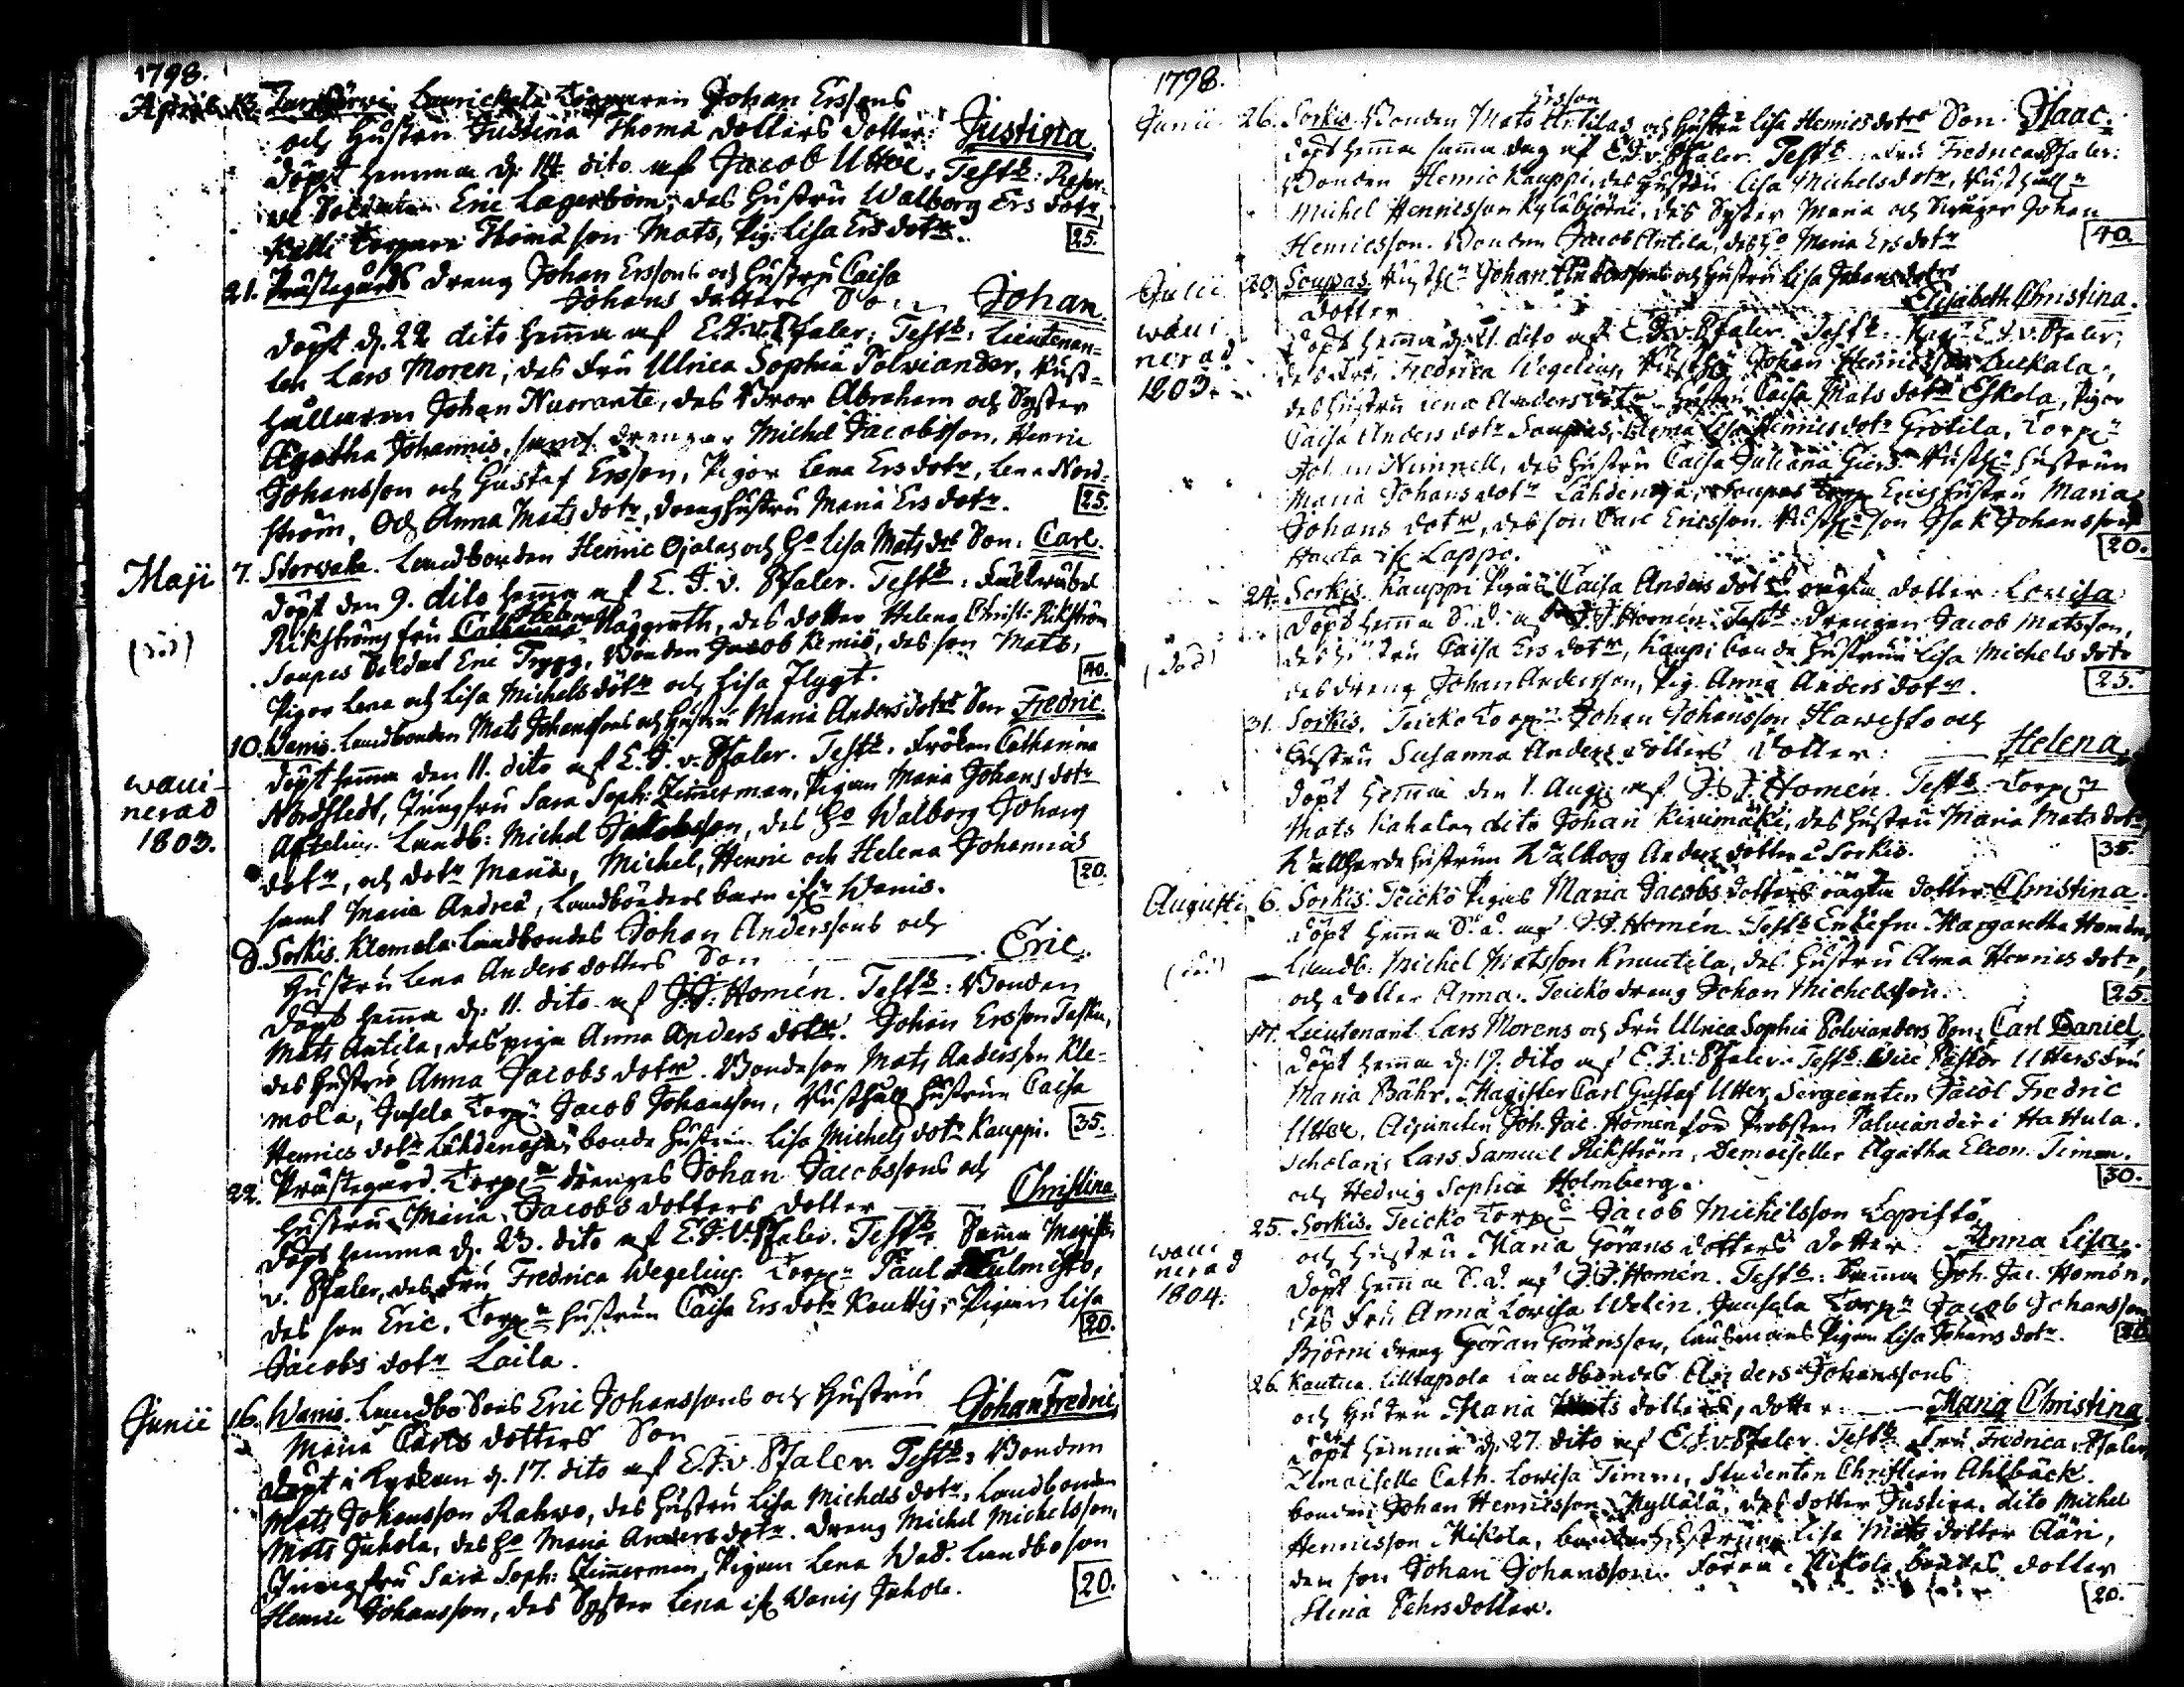 1798.
April 13. Lauricala Torparen Johan Erssons
och Hustru Justina Thoma dotters dotter: Justina.
döpt hemma d. 14 dito af Jacob Utter. Test: Reser-
ve Soldaten Eric Lagerbom, des Hustru Walborg Ers dotr
Torpare Thoma son Mats, Pig. Lisa Ers dotr. 25.
21. Prästegårds dreng Johan Erssons och Hustru Caisa
Johans dotters Son Johan.
döpt d. 22 dito hema af E.J.v.Pfaler. Test: Lieutenan-
ten Lars Moren, des Fru Ulrica Sophia Polviander, Rust-
hållaren Johan Nuorante, des Bror Abraham och Syster
Agatha Johannis, samt drengar Michel Jacobsson, Henric
Johansson och Gustaf Ersson, Pigor Lena Ers dotr, Lena Nord-
ström, och Anna Mats dotr, dreng Hustru Maria Ers dotr. 25.
Maji 7. Storwale. Landbonden Henric Ojalas och Ho Lisa Mats drs Son: Carl.
döpt den 9. dito hema af E.J.v.Pfaler. Test: Fältväbel
Rikströms fru Helena Margareth, des dotter Helena Christ: Rikström
(död)
Soupas Soldat Eric Trygg. Bonden Jacob Kemis, des son Mats,
Pigor Lena och Lisa Michels dotr och Lisa Flygt. 40.
10. Wanis. Landbonden Mats Johanssons och Hustru Maria Anders dotrs Son Fredric.
döpt hema den 11. dito af E.J.v.Pfaler. Test: Fröken Catharina
wacci-
nerad
1803.
Nordstedt, Jungfru Sara Soph: Zimmerman, Pigan Maria Johans dotr
Landb: Michel Jakobsson, des Ho Walborg Johans
dotr, och dotr Maria, Michel, Henric och Helena Johannis
samt Maria Andreæ, Landbönders barn ifr Wanis. 20.
8. Sorkis. Klemola Landbondes Johan Anderssons och
Hustru Lena Anders dotters Son Eric.
döpt hema d. 11. dito af J.J. Homén. Test: Bonden
Mats Antila, des piga Anna Anders dotr. Johan Ersson Tasku,
des Hustru Anna Jacobs dotr. Bonde son Mats Andersson Kle-
mola, Jusela Torpn Jacob Johansson, Rusthåll Hustrun Caisa
Henrics dotr Lähdenoja, bonde Hustrun Lisa Michels dotr Kauppi. 35.
22. Prästegård. Torpn drenges Johan Jacobssons och
Hustru Maria Jacobs dotters dotter Christina
döpt hemma d. 23. dito af E.J.v.Pfaler. Test: Samma Magister
v. Pfaler, des Fru Fredrica Wegelius. Torpn Paul Kulmisto,
des son Eric. Torpn Hustrun Caisa Ers dotr Kautty, Pigan Lisa
Jacobs dotr Laila. 20.
Junii 16. Wanis. Landbo Sons Eric Johanssons och Hustru
Maria Carls dotters Son Johan Fredric.
döpt i Kyrkan d. 17. dito af E.J.v.Pfaler. Test: Bonden
Mats Johansson Rahwo, des Hustru Lisa Michels dotr, Landbonden
Mats Juhola, des Ho Maria Anders dotr. dreng Michel Michelsson,
Jungfru Sara Soph: Zimmerman, Pigan Lena Wad. Landboson
Henric Johansson, des Syster Lena ifr Wanis Juhola. 20.
1798.
Junii 26. Sorkis Bonden Mats Ersson Antilas och Hustru Lisa Henrics dotrs Son Isaac.
döpt hema samma dag af E.J.v.Pfaler. Test: Fru Fredrica Pfaler.
Bonden Henric Kauppi, des Hustru Lisa Michelsdotr, Rusthålln
Michel Henricsson Kyläbjörni, des Syster Maria och Swåger Johan
Henricsson. Bonden Jacob Antila, des Ho Maria Ers dotr 40.
Julii 20. Soupas Rusthn Johan och Hustru Lisa Johans dotrs
dotter Elisabeth Christina.
wacci
nerad
1803.
döpt hemma d. 21. dito af E.J.v.Pfaler. Test: Magr E.J.v.Pfaler,
des Fru Fredrica Wegelius, Johan Henricsson Luckala,
des Hustru Lena Anders dotr. Hustru Caisa Mats dotr Eskola, Pigor
Caisa Anders dotr Soupas, Lisa Henrics dotr Grotila, Torpn
Johan Nimnell, des Hustru Caisa Juliana Giers. Rusthn Hustrun
Maria Johans dotr Lähdenoja, Soupas Torp. Erics Hustru Maria
Johans dotr, des son Carl Ericsson. Rusthn son Isak Johansson
ifr Lappo. 20.
24. Sorkis Kauppi Pigas Caisa Anders dotrs oägta dotter: Lovisa
döpt hemma S.d. af J.J. Homén. Test: drengen Jacob Matsson,
(död)
des Hustru Caisa Ers dotr, Kaupi bonde Hustrun Lisa Michels dotr
des dreng Johan Andersson, Pig. Anna Anders dotr. 25.
31. Sorkis. Teicko Torpn Johan Johansson Hawisto och
Hustru Susanna Anders dotters dotter: Helena.
döpt hemma den 1. Aug. af J.J. Homén. Test: Torpn
Mats Kahala, dito Johan Kivimäki, des Hustru Maria Mats dotr,
Hustrun Walborg Anders dotter i Sorkis. 35.
Augusti 6. Sorkis. Teicko Pigas Maria Jacobs dotters oägta dotter: Christina.
döpt hemma S.d. af J.J. Homén. Test: Enkefru Margaretha Homén,
(död)
Landb: Michel Matsson Knuutila, des Hustru Anna Henrics dotr,
och dotter Anna. Teicko dreng Johan Michelsson. 25.
17. Lieutenant Lars Morens och Fru Ulrica Sophia Polvianders Son: Carl Daniel.
döpt hema d. 19. dito af E.J.v.Pfaler. Test: Vice Pastor Utters Fru
Maria Bähr. Magister Carl Gustaf Utter, Sergeanten Jacob Fredric
Utter, Adjuncten Joh. Jac. Homén för Probsten Polviander i Hattula.
Scholaris Lars Samuel Rikström, Demoiseller Agatha Eleon. Timm.
och Hedvig Sophia Holmberg. 50.
25. Sorkis. Teicko Torpn Jacob Michelsson Lepistö
och Hustru Maria Görans dotters dotter: Anna Lisa.
wacci
nerad
1804.
döpt hemma S.d. af J.J. Homén. Test: Samma Joh. Jac. Homén,
des Fru Anna Lovisa Welin. Juusela Torpn Jacob Johansson
Björni dreng Göran Göransson, Lansmans Pigan Lisa Johans dotr. 20
26. Kautua Lilltapola Landbondes Anders Johanssons
och Hustru Maria Mats dotters, dotter: Maria Christina
döpt hemma d. 27. dito af E.J.v.Pfaler. Test: Fru Fredrica Pfaler,
Dmoiselle Cath. Lovisa Timm, Studenten Christian Ahlbäck.
bonden Johan Henricsson Kyllälä, des dotter Justina, dito Michel
Henricsson Mikola, bonde Hustrun Lisa Mats dotter Ääri,
den son Johan Johansson. Förra Mikola bondes dotter
Stina Pehrs dotter. 20.